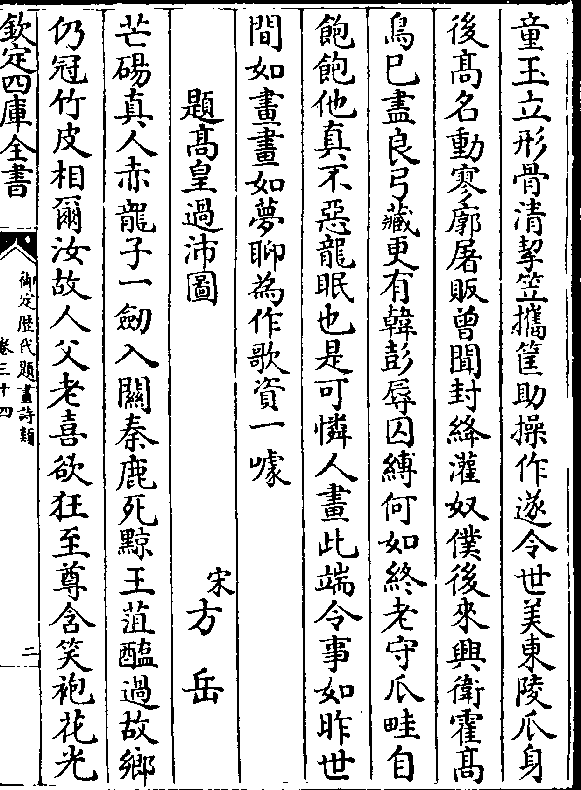 童玉立形骨清挈笠攜筐助操作遂令世美東陵瓜身
後髙名動寥廓屠販曾聞封絳灌奴僕後來興衛霍髙
鳥已盡良弓藏更有韓彭辱囚縛何如終老守瓜畦自
飽飽他真不惡龍眠也是可憐人畫此端令事如昨世
間如畫畫如夢聊為作歌資一噱
題髙皇過沛圖
宋方岳
芒碭真人赤龍子一劒入關秦鹿死黥王葅醢過故鄉
仍冠竹皮相爾汝故人父老喜欲狂至尊含笑袍花光
欽定四庫全書
御定歴代題畫詩類
卷三十四
二